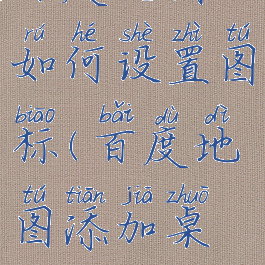 rú hé shè zhì tú
如何设置图
biāo bǎi dù dì
标(百度地
tú tiān jiā zhuō
图添加桌